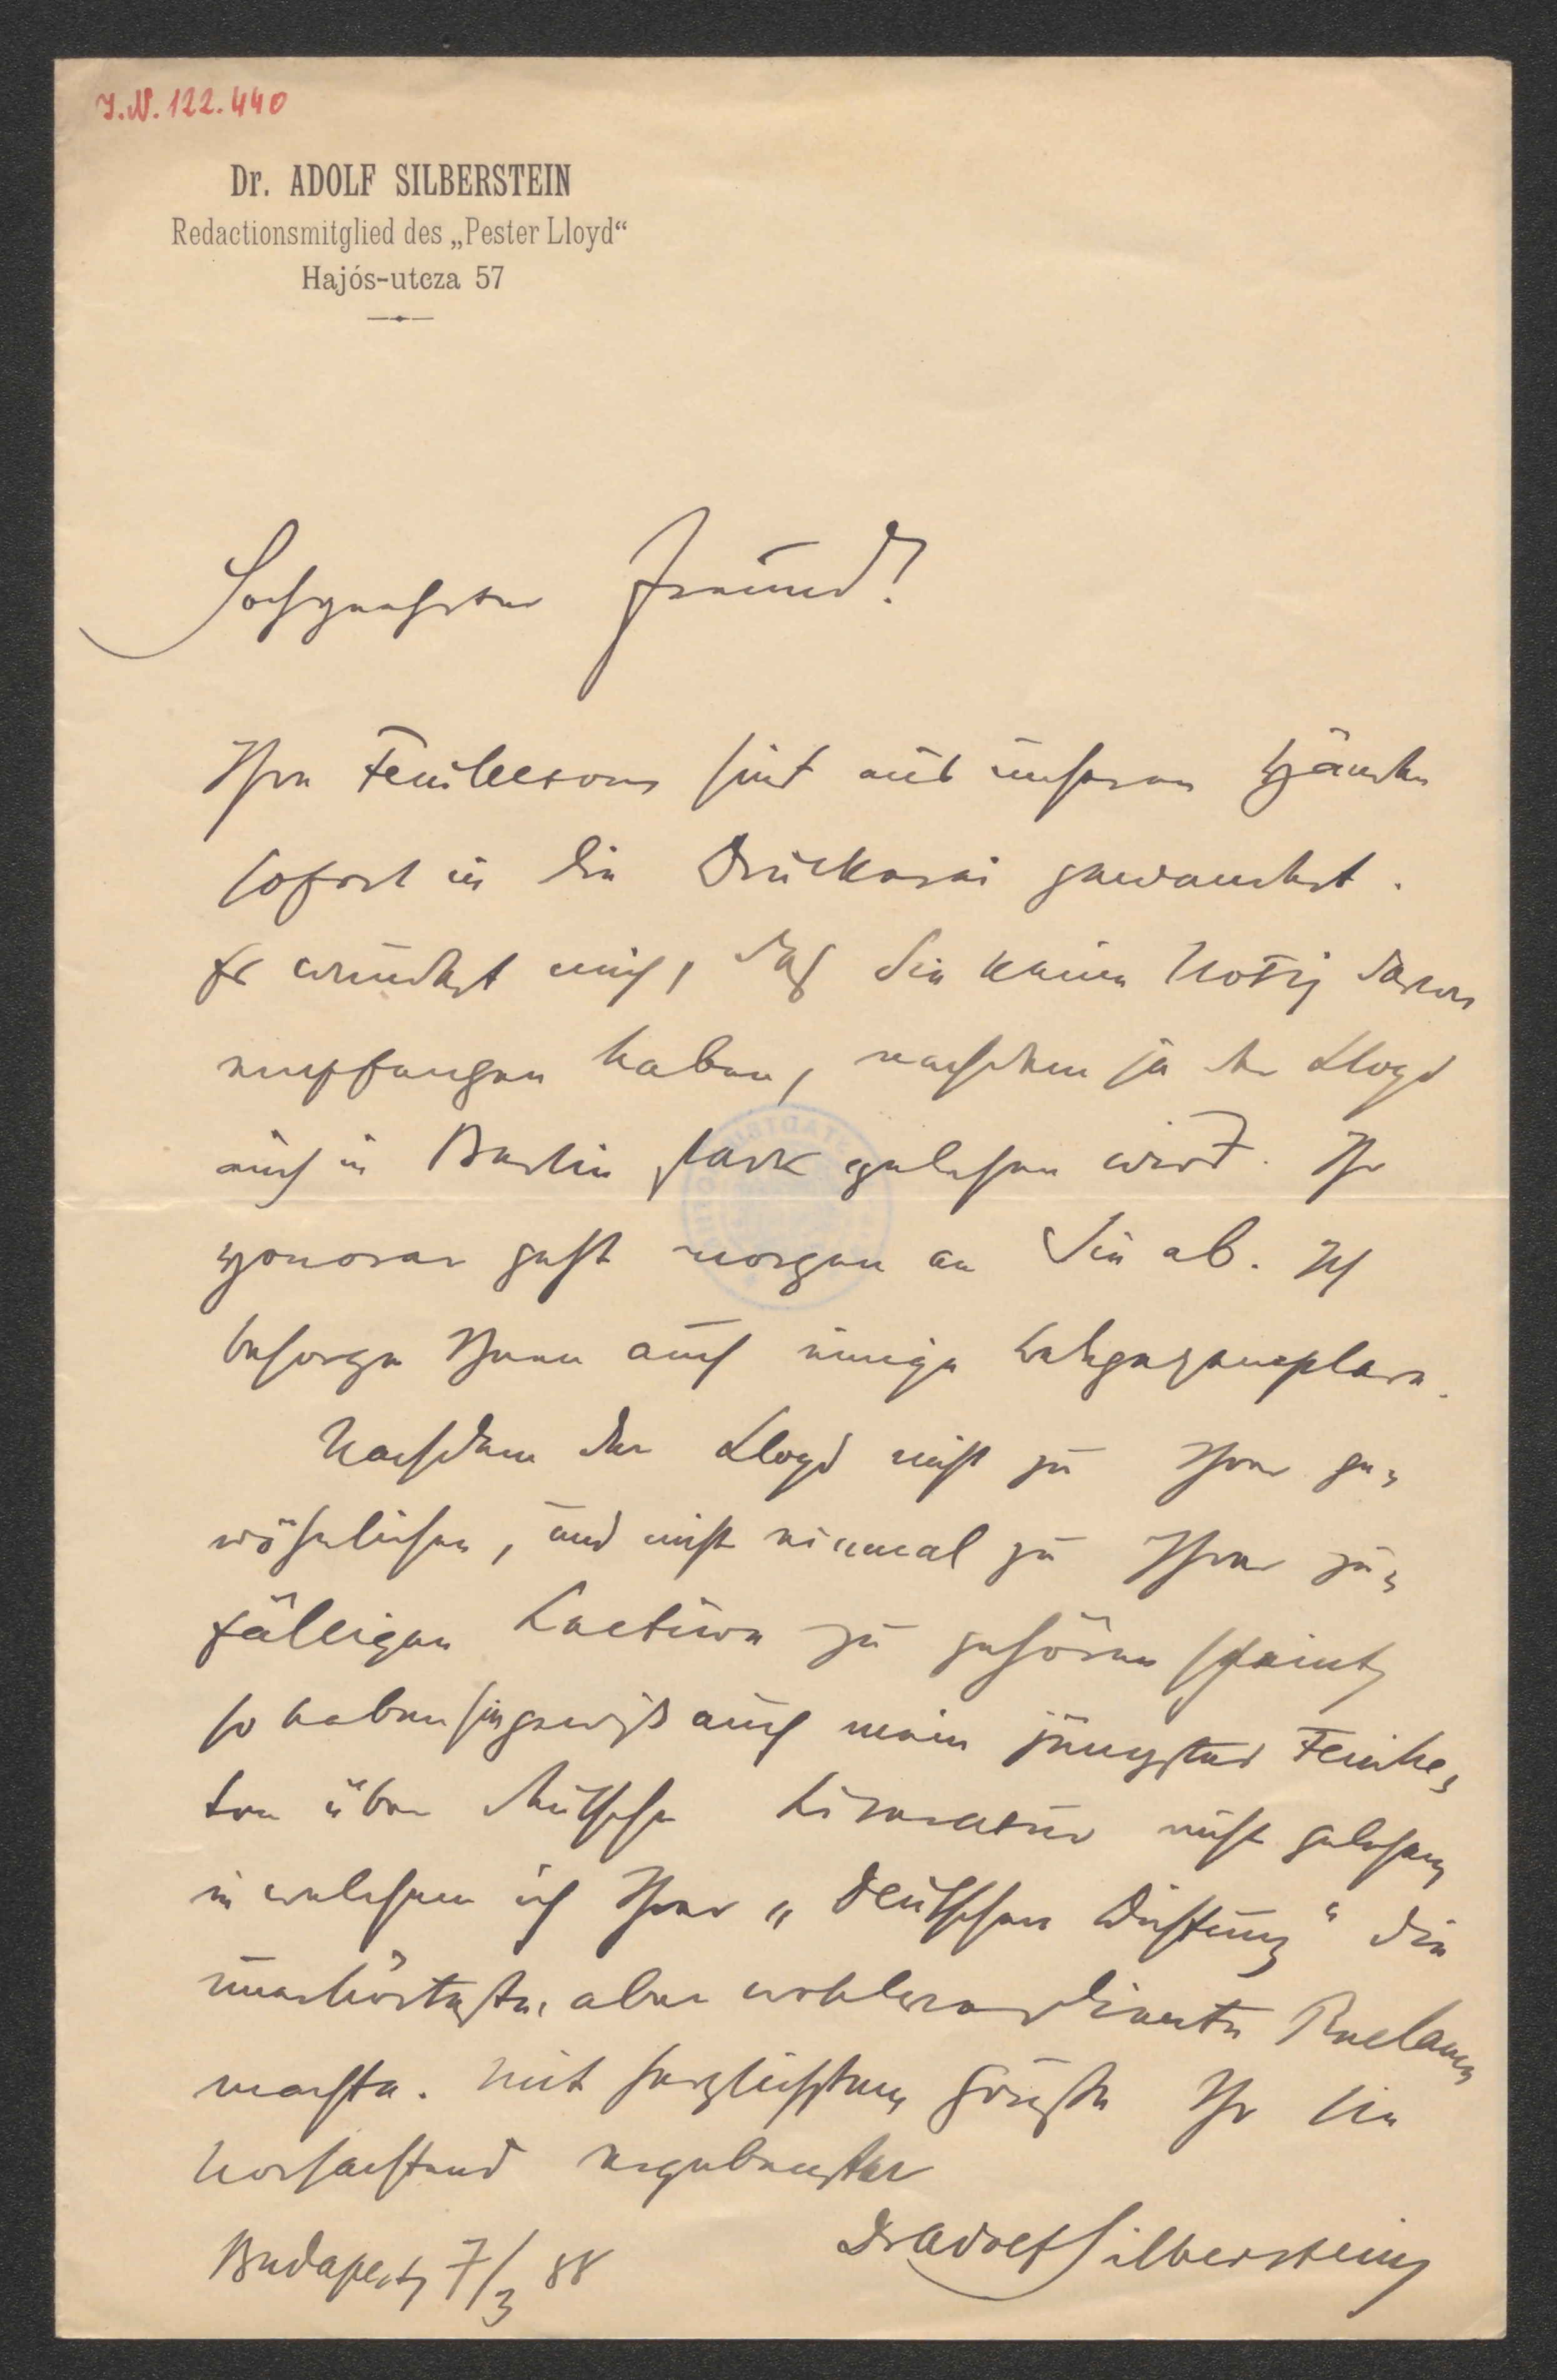 J.N. 122.440
Dr. ADOLF SILBERSTEIN
Redactionsmitglied des „Pester Lloyd“
Hajós-utcza 57
Hochgeehrter Freund!
Ihre Feuilletons sind aus unseren Händen
sofort in die Druckerei gewandert.
Es wundert mich, daß Sie keine Notiz davon
empfangen haben, nachdem ja der Lloyd
auch in Berlin stark gelesen wird. Ihr
Honorar geht morgen an Sie ab. Ich
besorge Ihnen auch einige Belegexemplare.
Nachdem der Lloyd nicht zu Ihrer ge-
wöhnlichen, und nicht einmal zu Ihrer zu-
fälligen Lectüre zu gehören scheint,
so haben Sie gewiß auch mein jüngstes Feuille-
ton über deutsche Literatur nicht gelesen,
in welchem ich Ihrer „Deutschen Dichtung“ die
unerhörteste, aber wohlverdiente Reclame
machte. Mit herzlichstem Gruße Ihr Sie
hochachtend ergebenster
Dr Adolf Silberstein
Budapest, 7/3 88